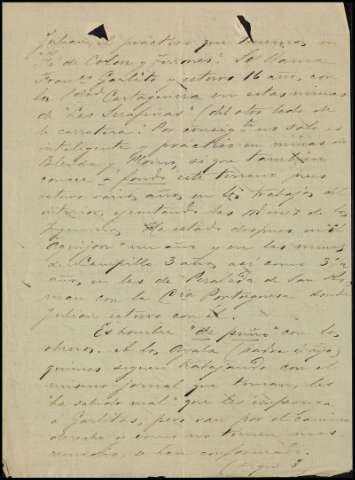 Julian, el práctico que tenemos en
de Colon y Jerónes. Se llama
Franco Garlito y estuvo 16 años con
la Socd Cartagenera en estas minas
de "Las Serafinas" (del otro lado de
la carretera). Por consigte no sólo es
inteligente y practico en minas de
Blenda y Plomo, si que tambien
conoce á fondo este terreno pues
estuvo varios años en los trabajos del
interior, ejecutando las de los
Ha estado despues en el
un año y en las minas
de Campillo 3 años, así como 3½
años en las de Peraleda de San Ro-
man con la Cía Portuguesa donde
Julian estuvo con él.
Es hombre "de puño" con los
obreros. A los Ayala (padre é hijo)
quienes siguen trabajando con el
mismo jornal que tenian, les
"ha sabido mal" que les imponga
a Garlito, pero van por el camino
derecho y como no tienen mas
remedio, se han conformado.
(Sigue 3